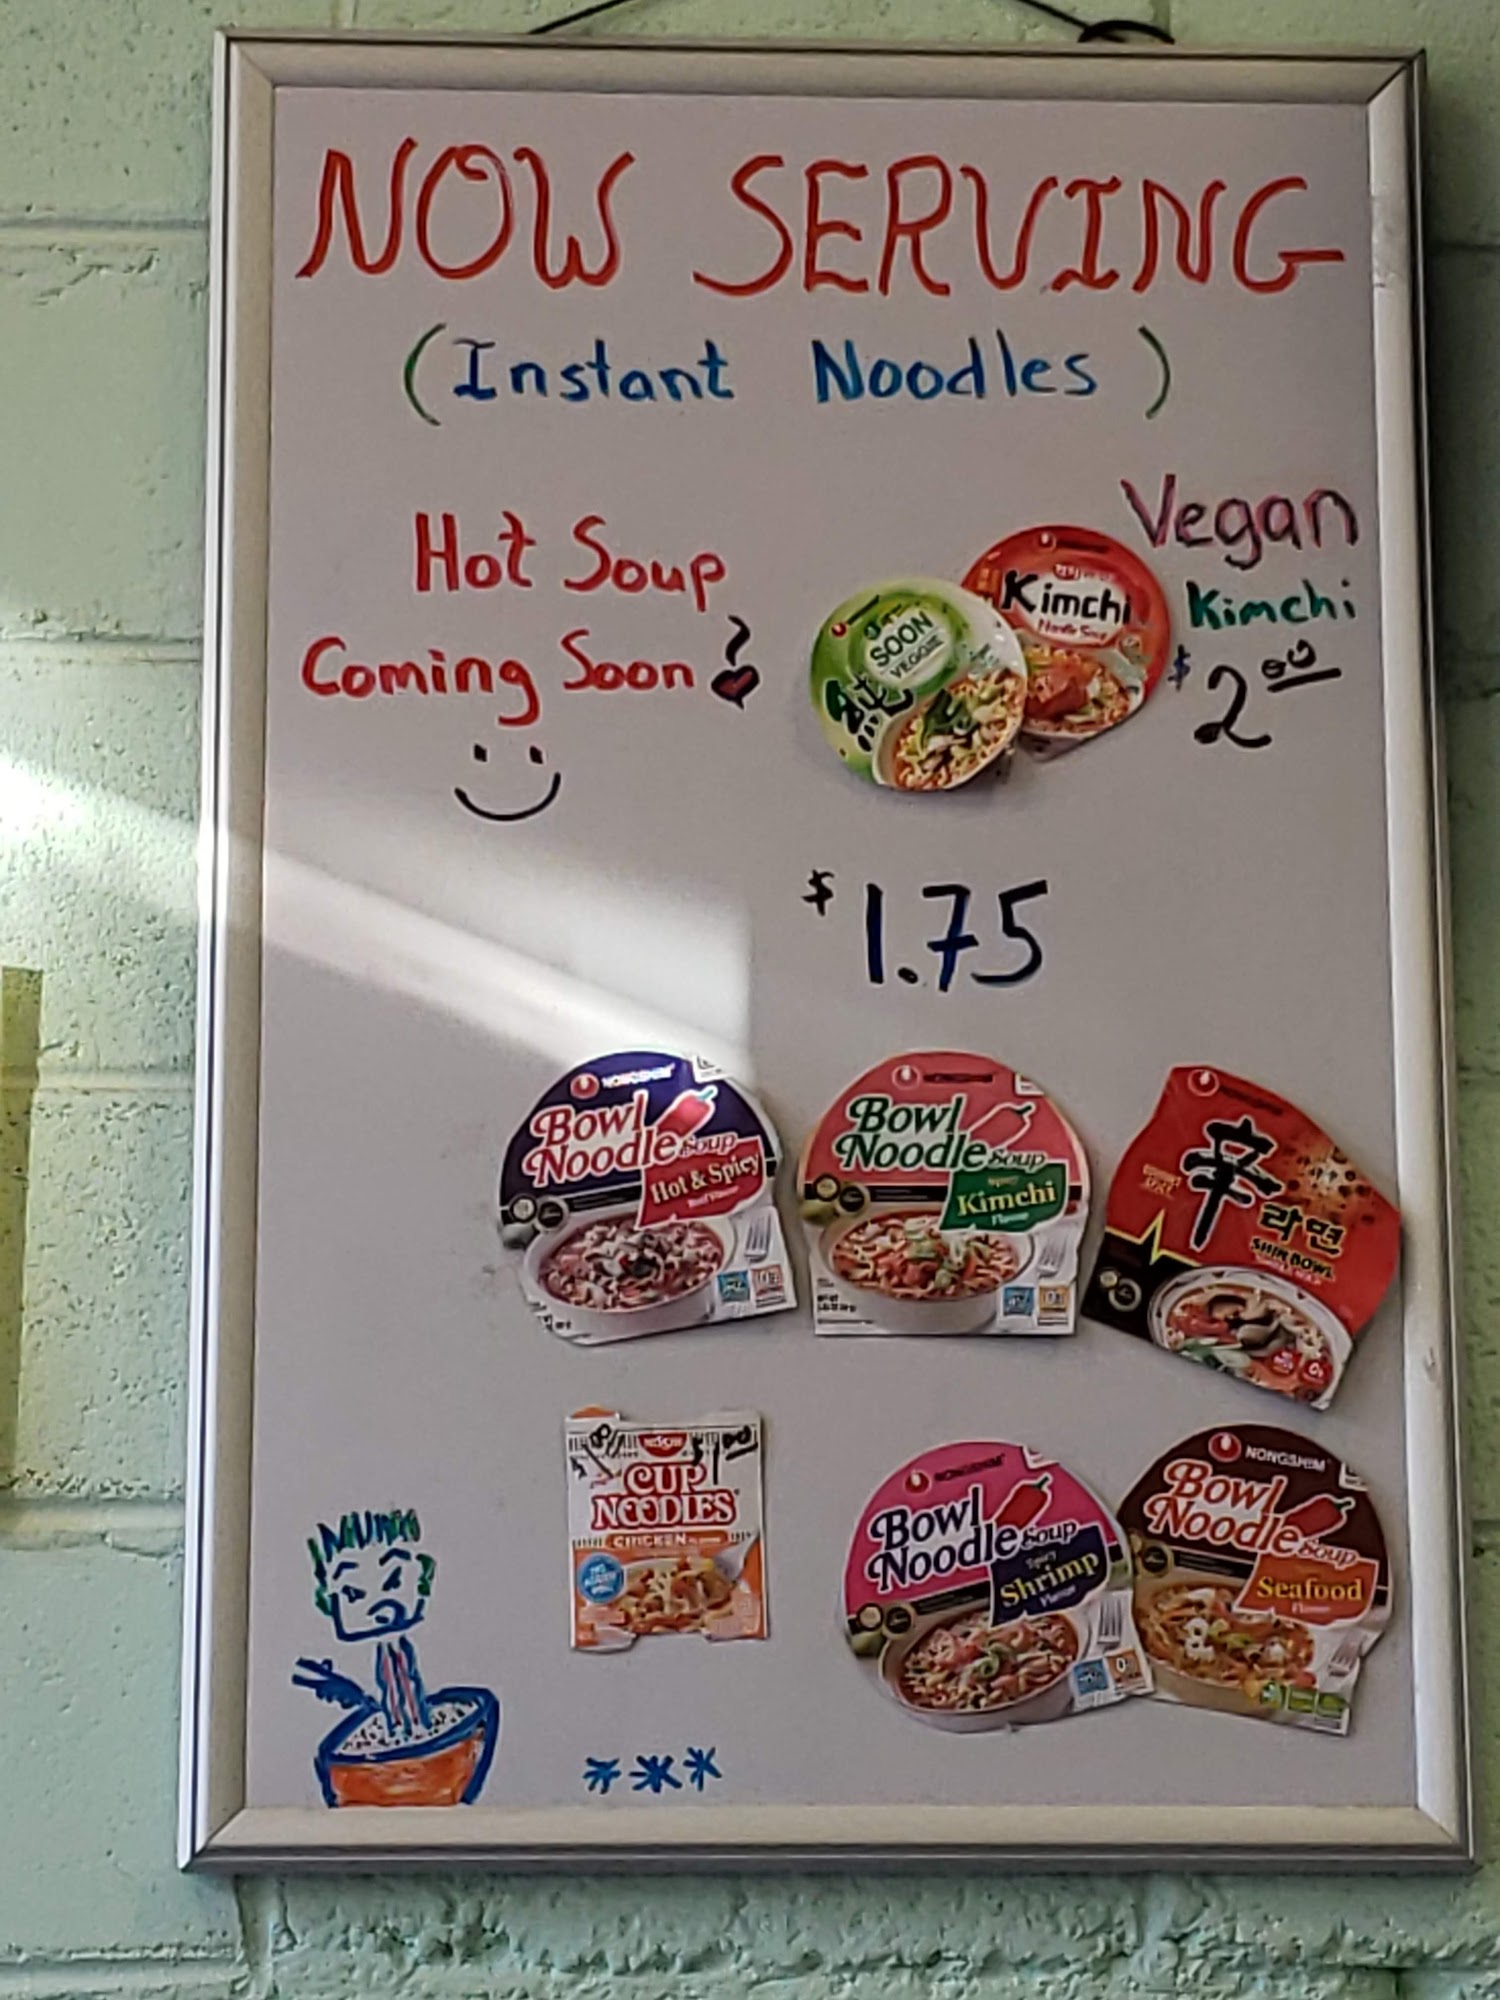 NOW SERVING
(Instant Noodles)
Hot Soup
Coming Soon
Vegan
Kimchi
$2.00
SOON
VEGGIE
Kimchi
Noodle Soup
$1.75
NONGSHIM
Bowl
Noodle Soup
Hot & Spicy
Beef Flavor
NONGSHIM
Bowl
Noodle Soup
Spicy
Kimchi
Flavor
辛
라면
SHIN BOWL
NISSIN
CUP
NOODLES
CHICKEN
$1.00
NONGSHIM
Bowl
Noodle Soup
Spicy
Shrimp
Flavor
NONGSHIM
Bowl
Noodle Soup
Seafood
Flavor
***